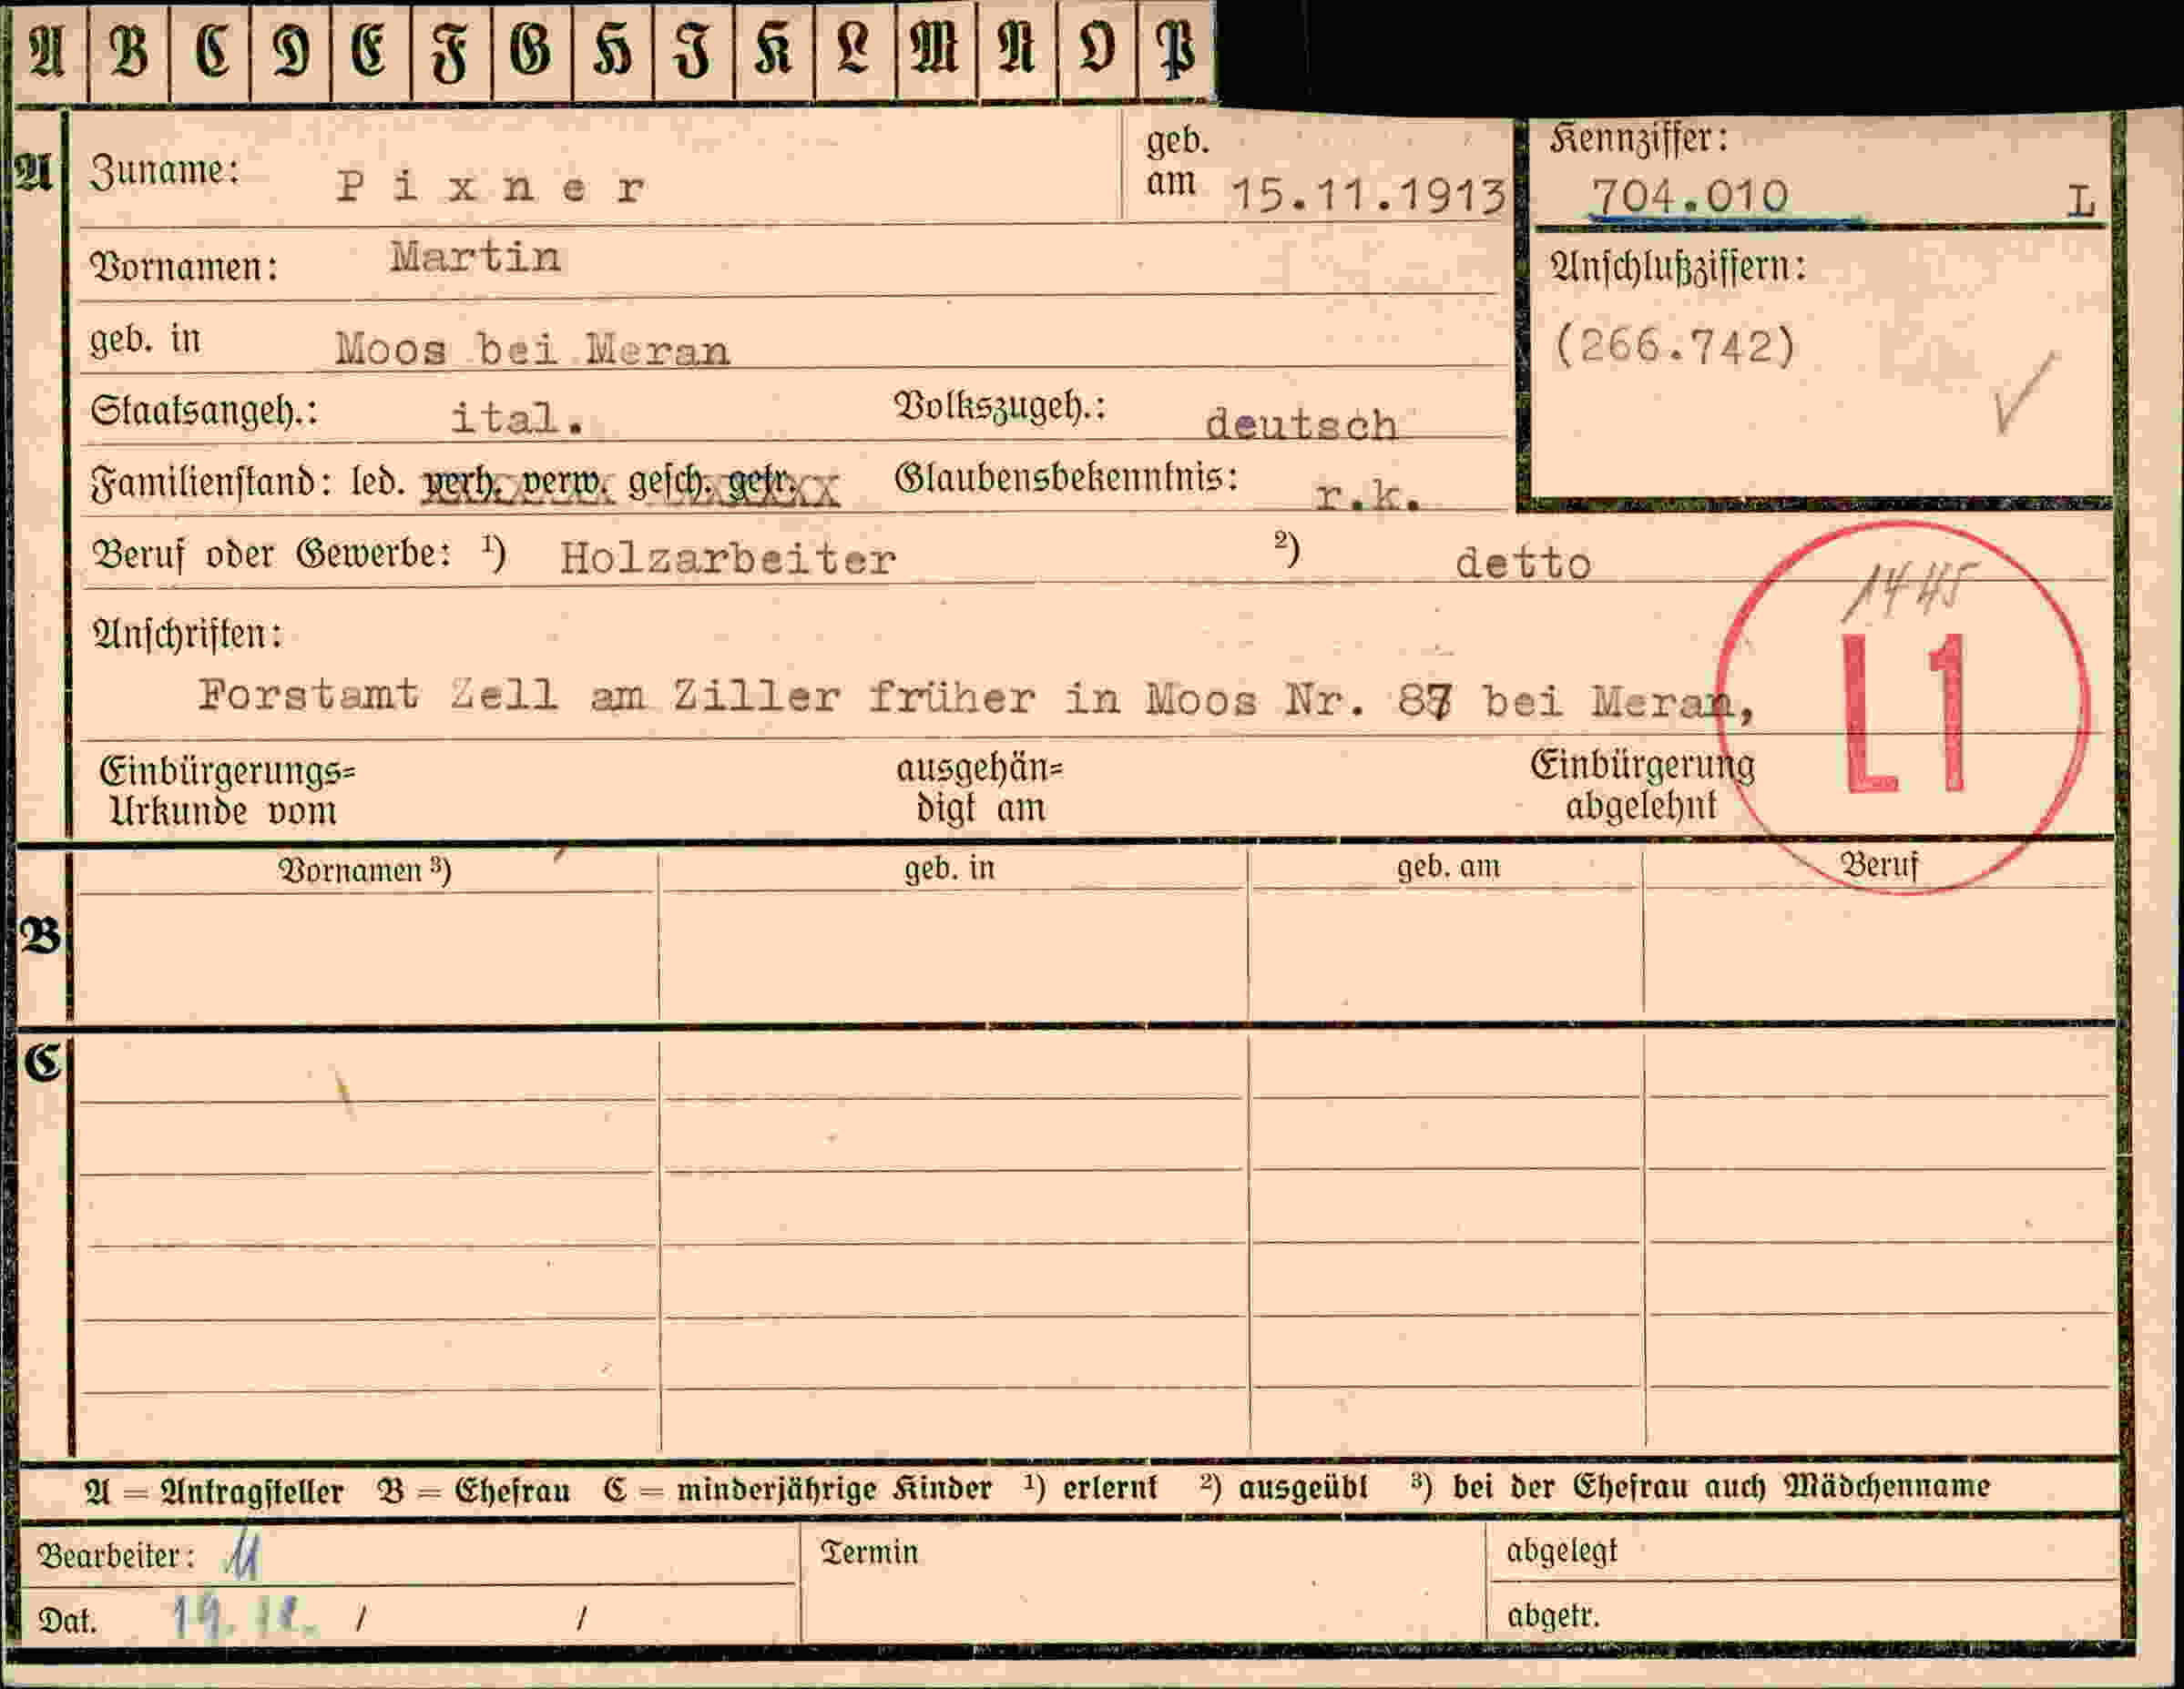 A B C D E F G H I K L M N O P
A Zuname: Pixner geb. am 15.11.1913 Kennziffer: 704.010 L
Vornamen: Martin Anschlußziffern:
geb. in Moos bei Meran (266.742) ✓
Staatsangeh.: ital. Volkszugeh.: deutsch
Familienstand: led. verh. verw. gesch. getr. Glaubensbekenntnis: r.k.
Beruf oder Gewerbe: ¹) Holzarbeiter ²) detto
1445
Anschriften:
L1
Forstamt Zell am Ziller früher in Moos Nr. 87 bei Meran,
Einbürgerungs= ausgehän= Einbürgerung
Urkunde vom digt am abgelehnt
Vornamen ³) geb. in geb. am Beruf
B
C
A = Antragsteller B = Ehefrau C = minderjährige Kinder ¹) erlernt ²) ausgeübt ³) bei der Ehefrau auch Mädchenname
Bearbeiter: Termin abgelegt
Dat. 19. 12. / / abgetr.